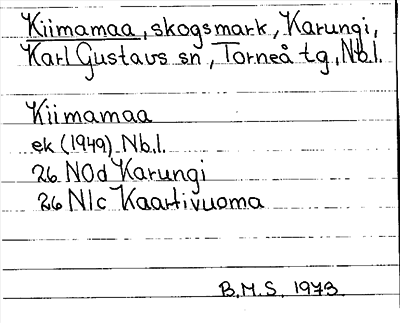 Kiimamaa, skogsmark, Karungi,
Karl Gustavs sn, Torneå tg, Nb.l.
Kiimamaa
ek (1949) Nb.l.
26 N0d Karungi
26 N1c Kaartivuoma
B.M.S. 1973